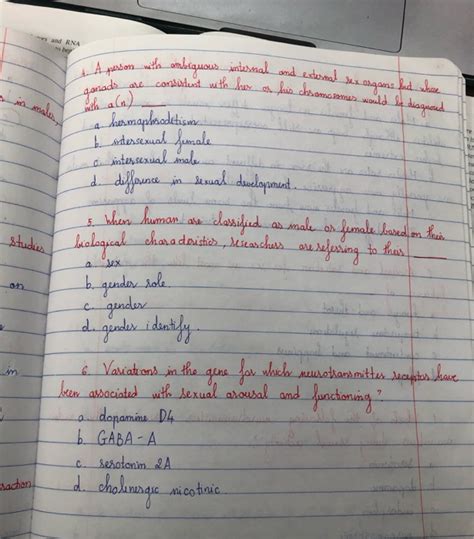 and RNA
4. A person with ambiguous internal and external sex organs but whose
gonads are consistent with her or his chromosomes would be diagnosed
with a(n) ____
a. hermaphroditism
b. intersexual female
c. intersexual male
d. difference in sexual development.
5. When human are classified as male or female based on their
biological characteristics, researchers are referring to their ____
a. sex
b. gender role.
c. gender
d. gender identify.
6. Variations in the gene for which neurotransmitter receptor have
been associated with sexual arousal and functioning?
a. dopamine D4
b. GABA-A
c. serotonin 2A
d. cholinergic nicotinic.
in males,
studies
on
in
raction